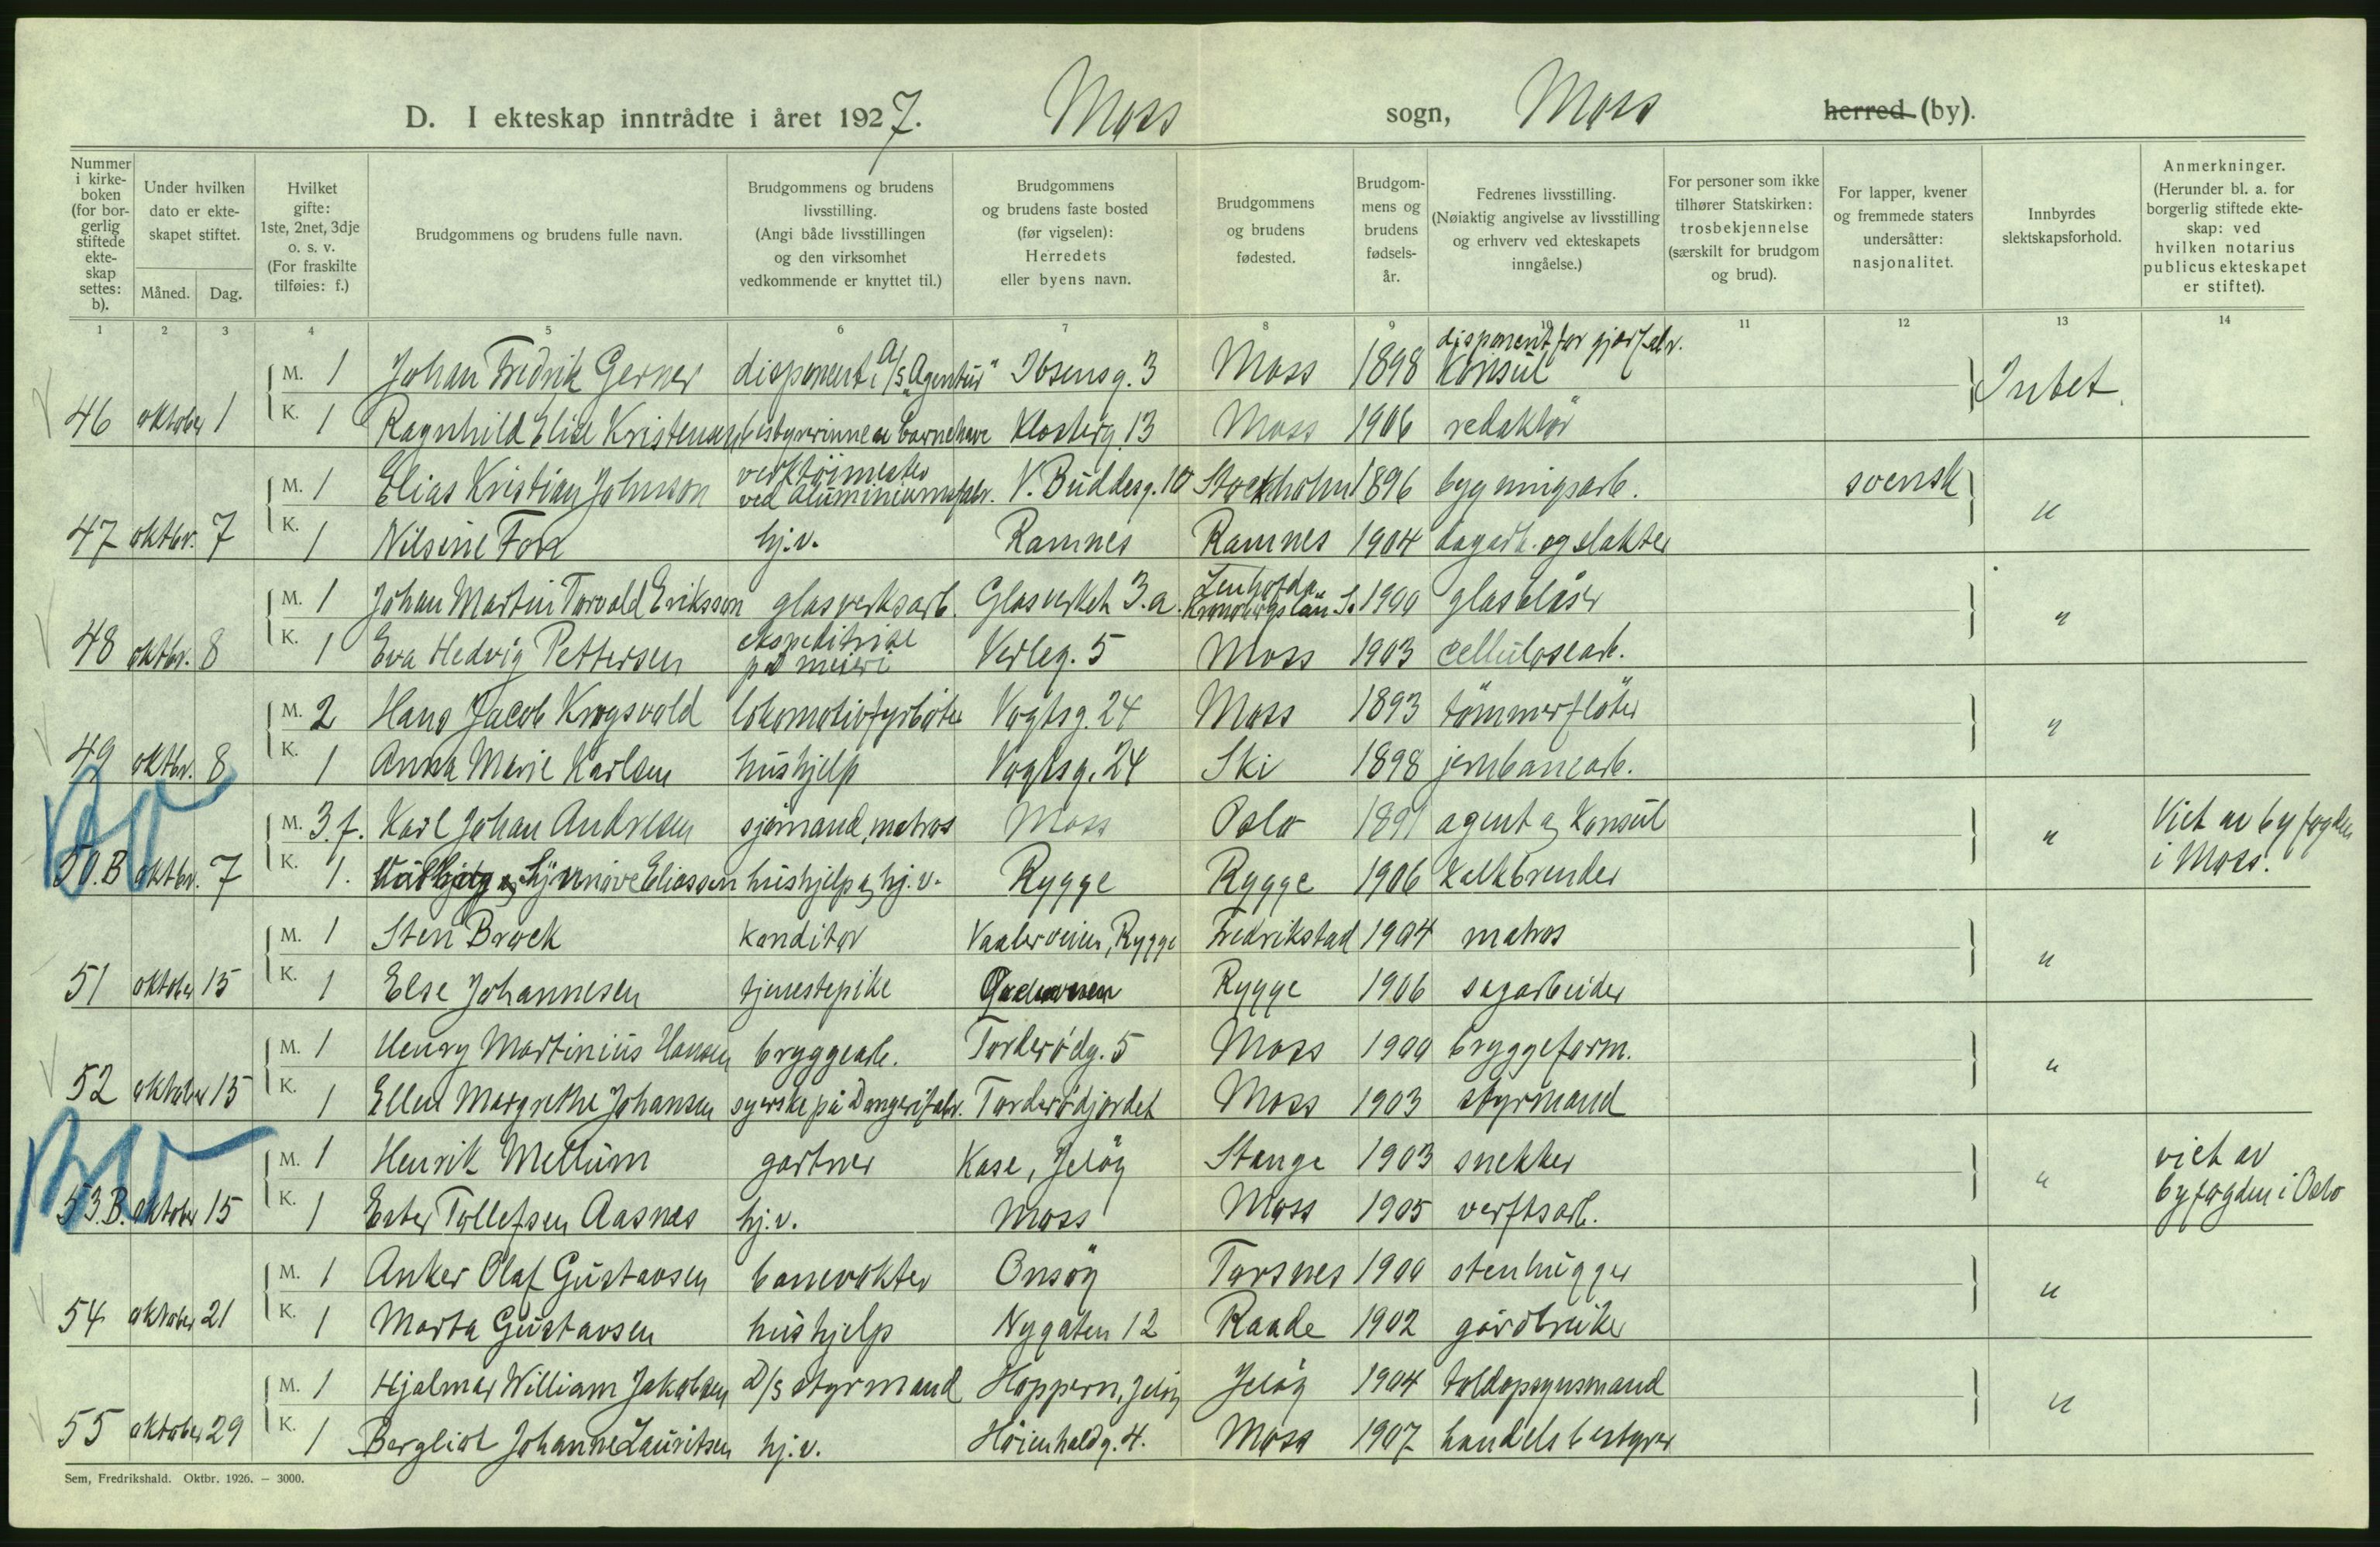 D. I ekteskap inntrådte i året 1927. Moss sogn, Moss herred (by).
Nummer i kirke-boken (for bor-gerlig stiftede ekte-skap settes: b).
Under hvilken dato er ekte-skapet stiftet.
Måned. Dag.
Hvilket gifte: 1ste, 2net, 3dje o. s. v. (For fraskilte tilføies: f.)
Brudgommens og brudens fulle navn.
Brudgommens og brudens livsstilling. (Angi både livsstillingen og den virksomhet vedkommende er knyttet til.)
Brudgommens og brudens faste bosted (før vigselen): Herredets eller byens navn.
Brudgommens og brudens fødested.
Brudgom-mens og brudens fødsels-år.
Fedrenes livsstilling. (Nøiaktig angivelse av livsstilling og erhverv ved ekteskapets inngåelse.)
For personer som ikke tilhører Statskirken: trosbekjennelse (særskilt for brudgom og brud).
For lapper, kvener og fremmede staters undersåtter: nasjonalitet.
Innbyrdes slektskapsforhold.
Anmerkninger. (Herunder bl. a. for borgerlig stiftede ekte-skap: ved hvilken notarius publicus ekteskapet er stiftet).
1 2 3 4 5 6 7 8 9 10 11 12 13 14
M. 1 Johan Fredrik Gerner disponent i A/S "Agentur" Ibsensg. 3 Moss 1898 disponent for gjærfabr. Konsul Intet.
46 oktober 1 K. 1 Ragnhild Elise Kristensen bestyrerinne av barnehave Klosterg. 13 Moss 1906 redaktör
M. 1 Elias Kristian Johnson verktöimester ved aluminiumsfabr. V. Buddesg. 10 Stockholm 1896 bygningsarb. svensk "
47 oktbr. 7 K. 1 Nilsine Foss hj.v. Ramnes Ramnes 1904 dagarb. og slakter
M. 1 Johan Martin Torvald Eriksson glasverksarb. Glasverket 3.a. Lenhofda Kronobergs län S. 1900 glasblåser "
48 oktbr. 8 K. 1 Eva Hedvig Pettersen ekspeditrise på meieri Verleg. 5 Moss 1903 cellulosearb.
M. 2 Hans Jacob Krogsvold lokomotivfyrböter Vogtsg. 24 Moss 1893 tömmerflöter "
49 oktbr. 8 K. 1 Anna Marie Karlsen hushjelp Vogtsg. 24 Ski 1898 jernbanearb.
M. 3. f. Karl Johan Andresen sjömand, matros Moss Oslo 1891 agent og Konsul " Viet av byfogden i Moss.
50.B oktbr. 7 K. 1. Synnöve Eliassen hushjelp og hj.v. Rygge Rygge 1906 kalkbrender
M. 1 Sten Brock konditor Vaalerveien, Rygge Fredrikstad 1904 matros "
51 oktober 15 K. 1 Else Johannesen tjenestepike Rygge 1906 sagarbeider
M. 1 Henry Martinius Hansen bryggearb. Torderödg. 5 Moss 1900 bryggeform. "
52 oktober 15 K. 1 Ellen Margrethe Johansen syerske på Dongerifabr. Torderödjordet Moss 1903 styrmand
M. 1 Henrik Mellum gartner Kase, Jelöy Stange 1903 snekker " viet av byfogden i Oslo
53.B. oktober 15 K. 1 Ester Tollefsen Aasnes hj.v. Moss Moss 1905 verftsarb.
M. 1 Anker Olaf Gustavsen banevokter Onsöy Torsnes 1900 stenhugger "
54 oktober 21 K. 1 Marta Gustavsen hushjelp Nygaten 12 Raade 1902 gårdbruker
M. 1 Hjalmar William Jakobsen D/S styrmand Hoppern, Jelöy Jelöy 1904 toldopsynsmand "
55 oktober 29 K. 1 Bergliot Johanne Lauritsen hj.v. Höienholdg. 4. Moss 1907 handelsbestyrer
Sem, Fredrikshald. Oktbr. 1926. — 3000.